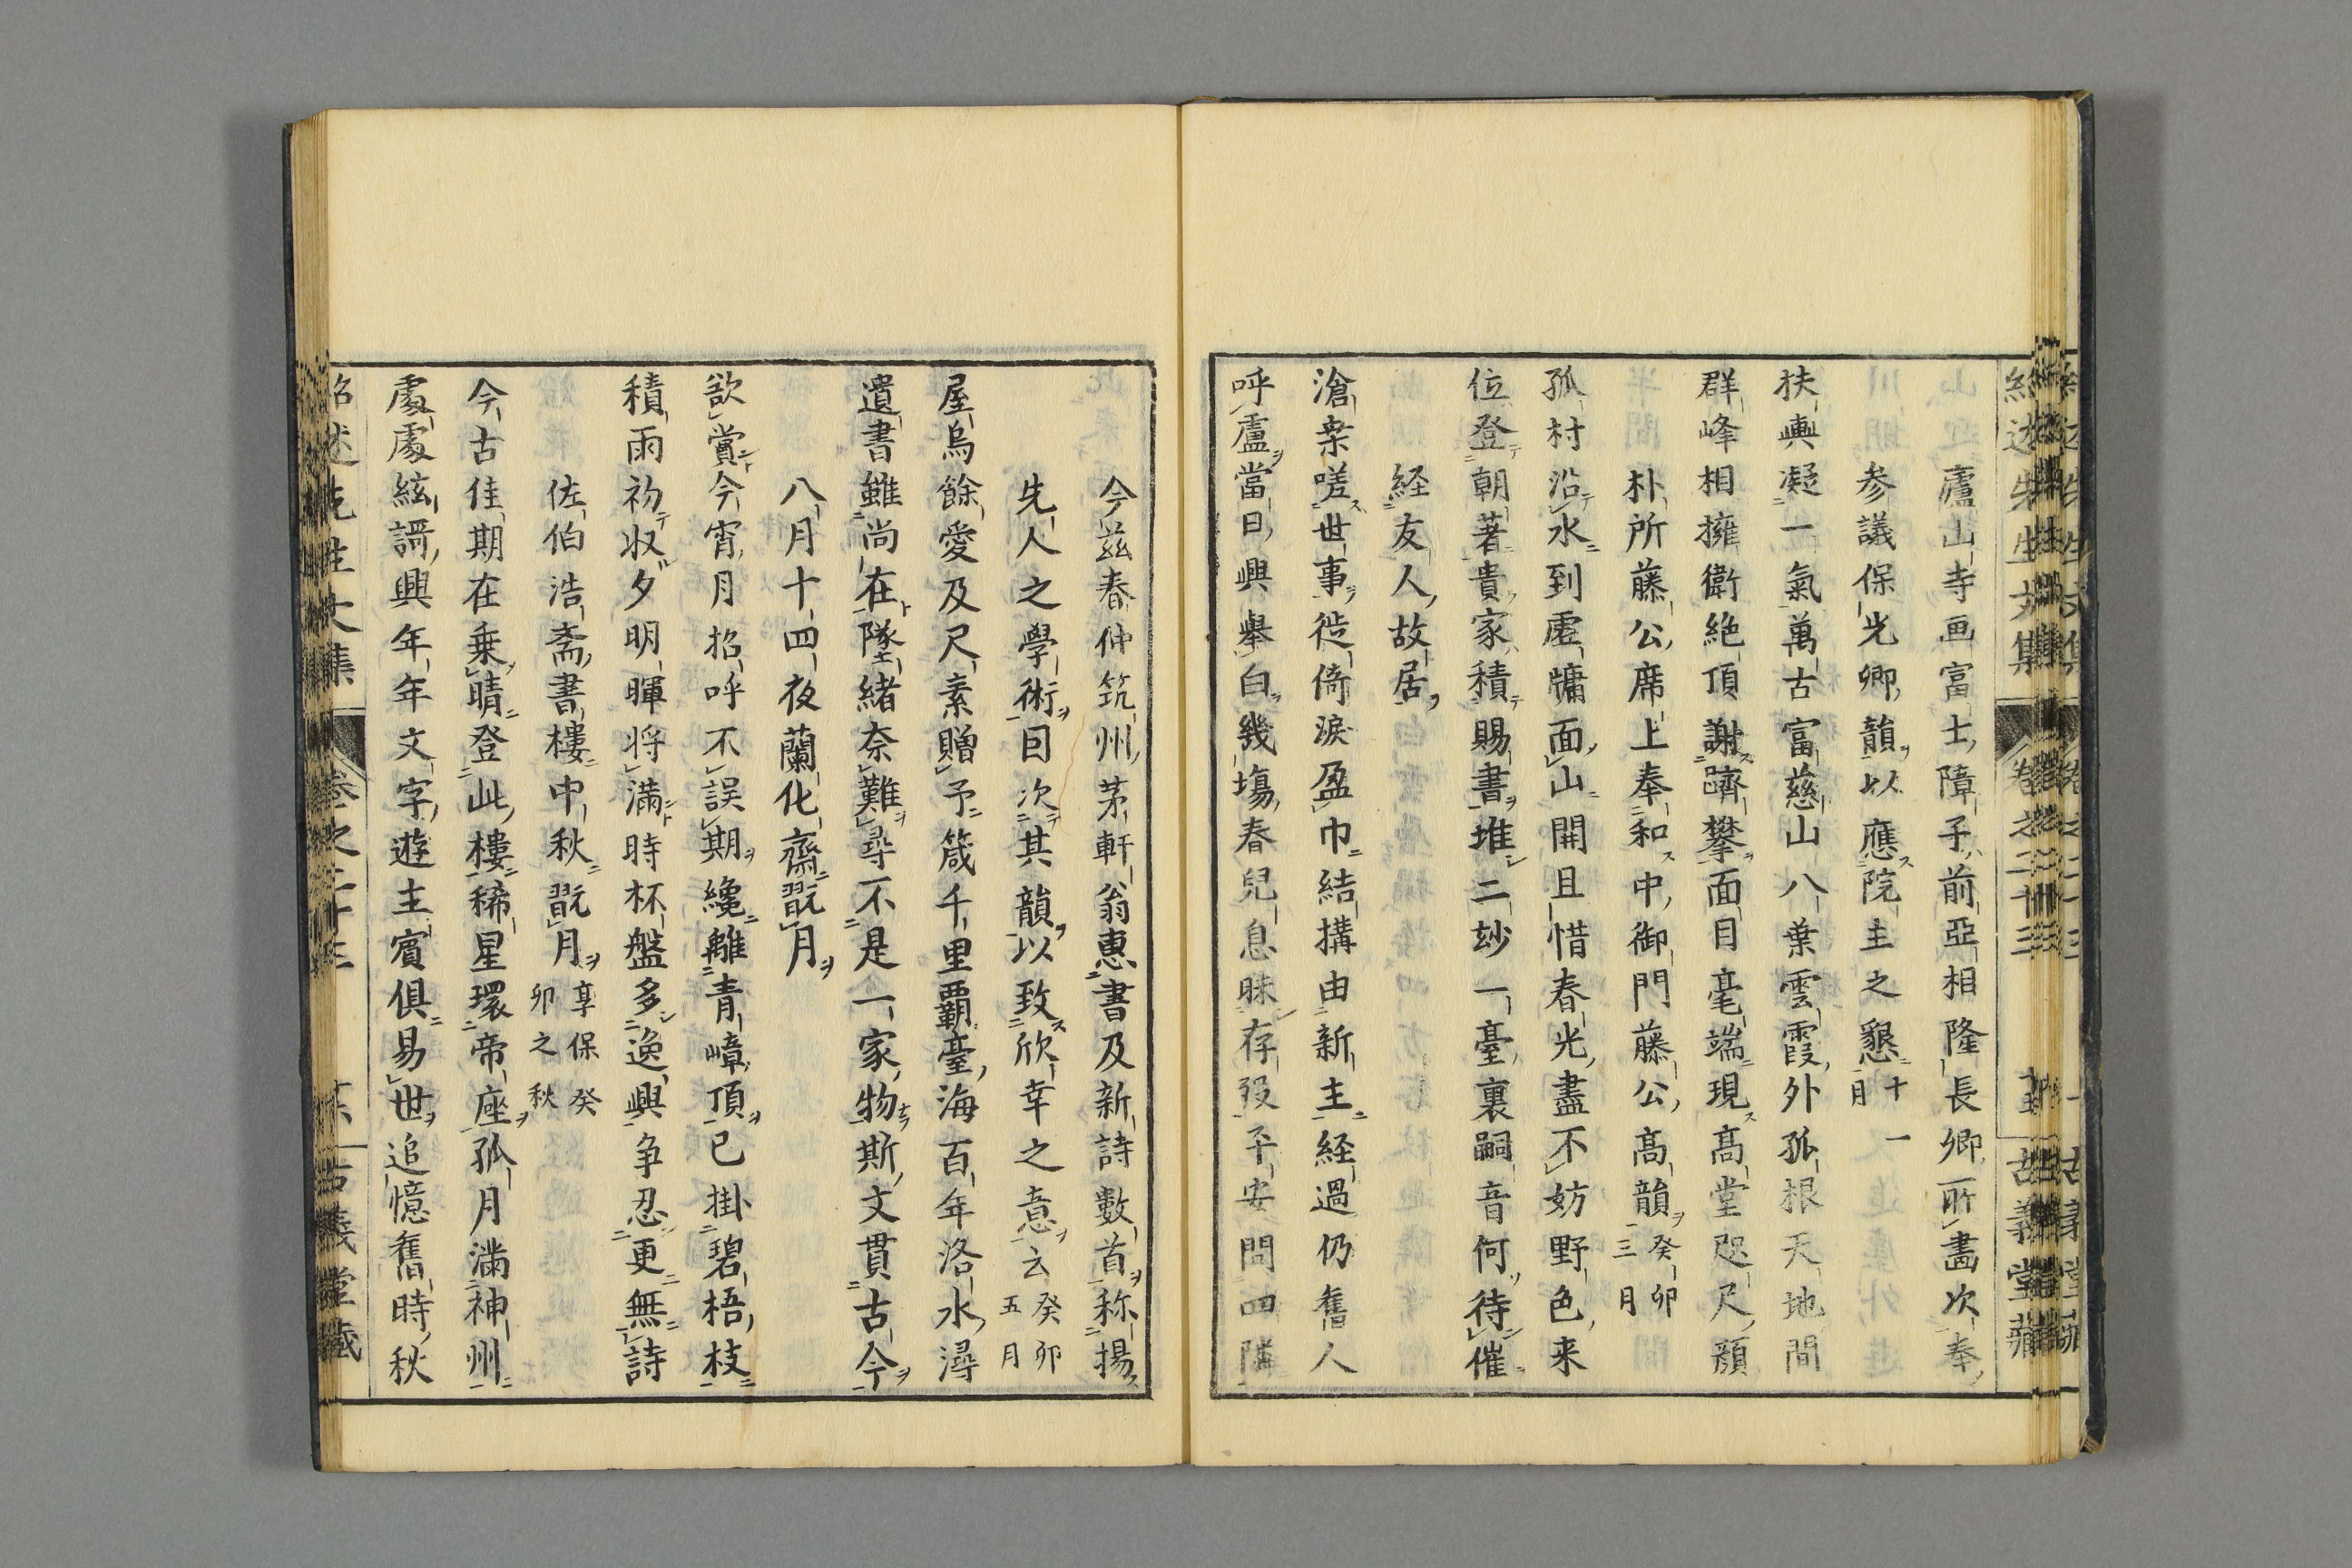 廬山寺画富士障子前亞相隆長卿所畵次奉
参議保光卿韻以應院主之懇十一月
扶輿凝一氣萬古富慈山八葉雲霞外孤根天地間
群峰相擁衛絶頂謝躋攀面目毫端現髙堂咫尺顔
朴所藤公席上奉和中御門藤公髙韻癸卯三月
孤村沿水到處牗面山開且惜春光盡不妨野色来
位登朝著貴家積賜書堆二玅一臺裏嗣音何待催
経友人故居
滄桒嗟世事徙倚淚盈巾結搆由新主経過仍舊人
呼盧當日興舉白幾塲春兒息昧存歿平安問四隣
今茲春仲筑州茅軒翁惠書及新詩數首称揚
先人之學術因次其韻以致欣幸之意云癸卯五月
屋烏餘愛及尺素贈予箴千里覇臺海百年洛水潯
遺書雖尚在墜緒奈難尋不是一家物斯文貫古今
八月十四夜蘭化齋翫月
欲賞今宵月招呼不誤期纔離青嶂頂已掛碧梧枝
積雨初収夕明暉将滿時杯盤多逸興争忍更無詩
佐伯浩斎書樓中秋翫月享保癸卯之秋
今古佳期在乗晴登此樓稀星環帝座孤月滿神州
處處絃謌興年年文字遊主賓俱易世追憶舊時秋
紹述先生文集 卷之二十三 古義堂藏